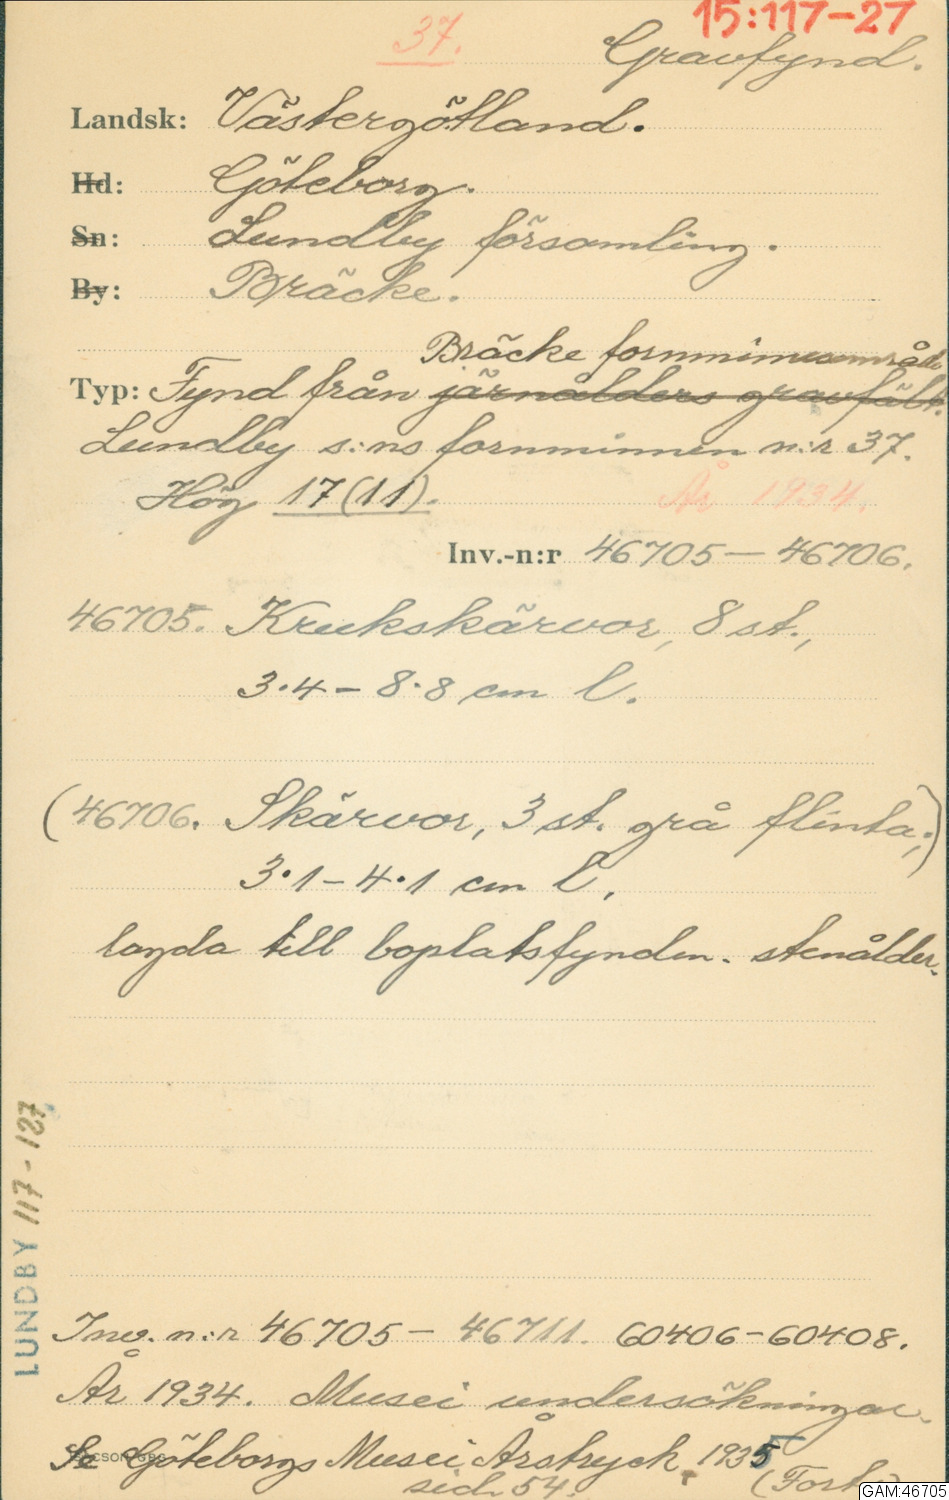 15:117-27
37.
Gravfynd.
Landsk: Västergötland.
Hd: Göteborg.
Sn: Lundby församling.
By: Bräcke.
Bräcke fornminnesområde
Typ: Fynd från järnålders gravfält.
Lundby s:ns fornminnen n:r 37.
Hög 17 (11).
År 1934.
Inv.-n:r 46705 — 46706.
46705. Krukskärvor, 8 st.,
3.4 – 8.8 cm l.
(46706. Skärvor, 3 st. grå flinta;)
3.1 – 4.1 cm l.
lagda till boplatsfynden. stenålder.
LUNDBY 117 - 127
Inv. n:r 46705 – 46711. 60406-60408.
År 1934. Musei undersökningar.
Se Göteborgs Musei Årstryck 1935
sid. 54. (Forts.)
GAM:46705